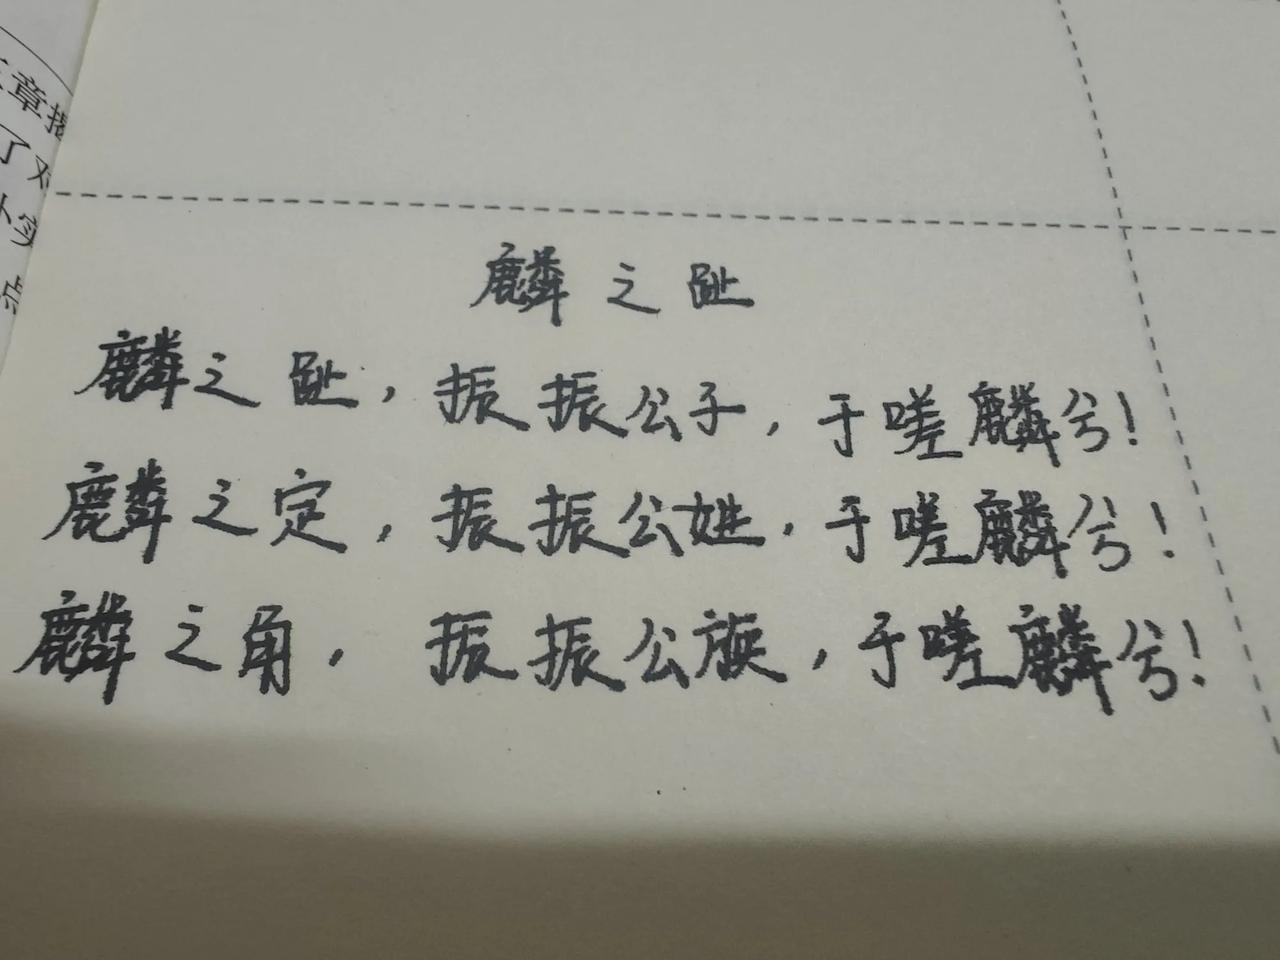 麟之趾
麟之趾，振振公子，于嗟麟兮！
麟之定，振振公姓，于嗟麟兮！
麟之角，振振公族，于嗟麟兮！
章
了